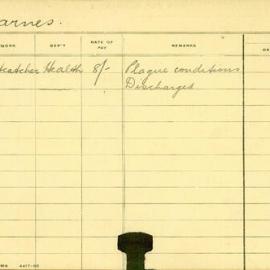 arnes.
WORK DEP'T RATE OF PAY REMARKS
catcher Health 8/- Plague conditions
Discharged